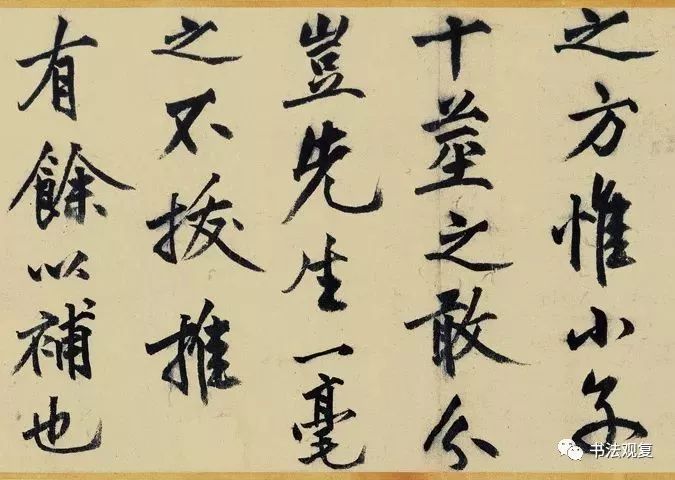 之方惟小子
十莖之敢分
豈先生一毫
之不拔推
有餘以補也
书法观复